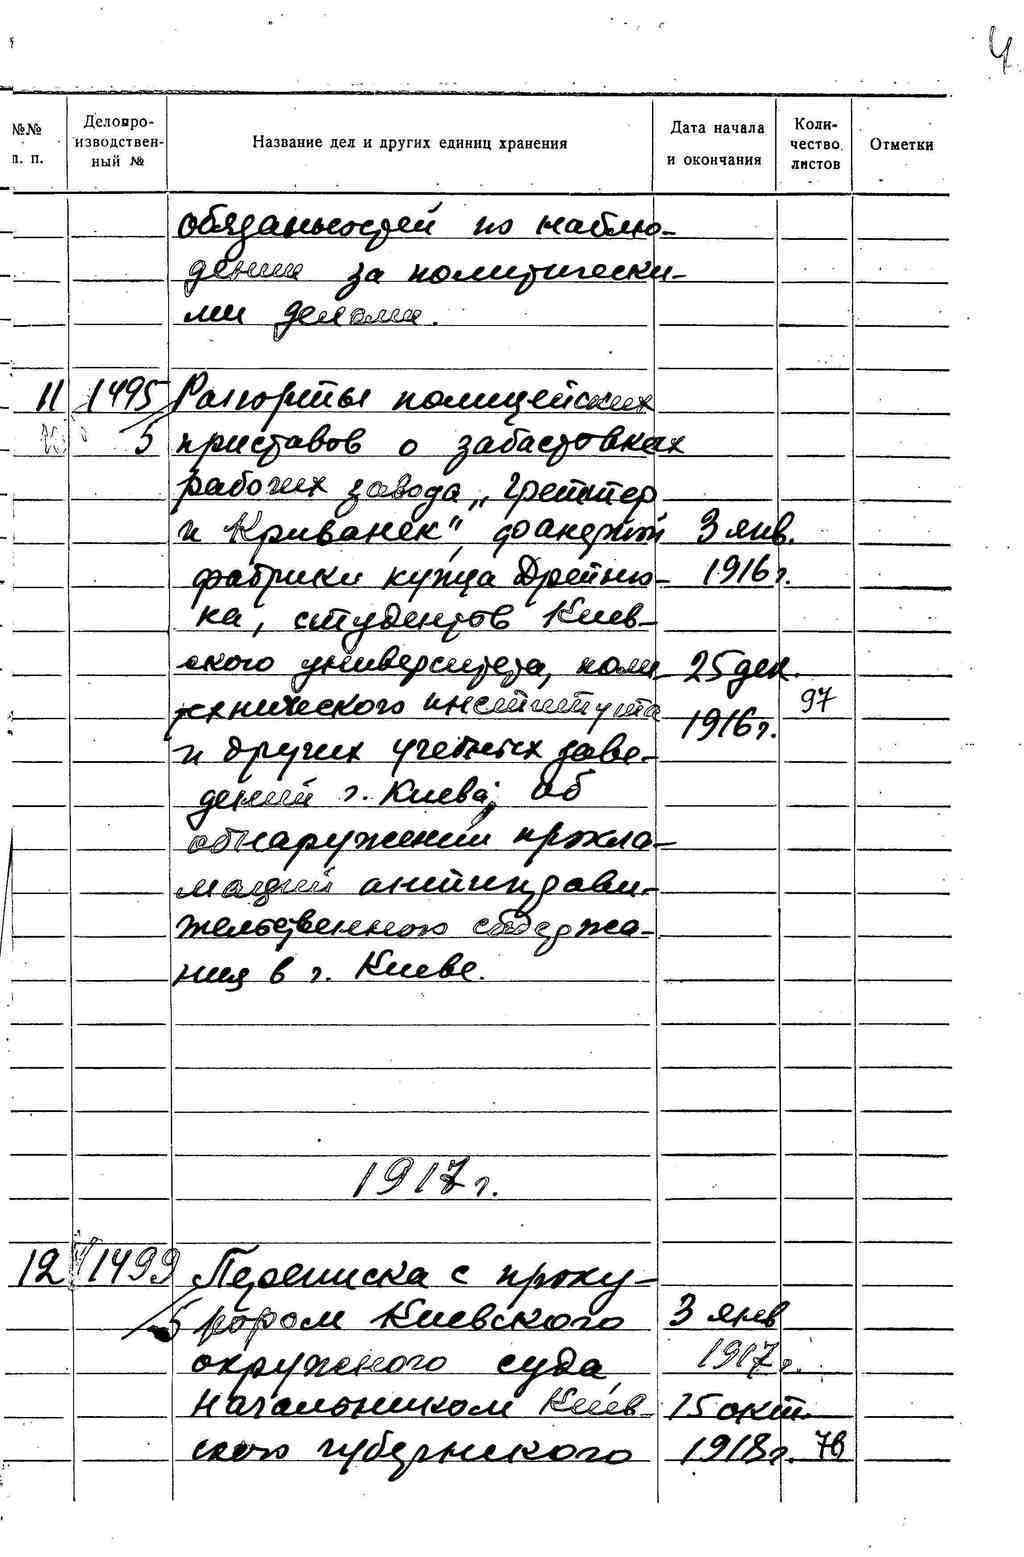 4
№№ п. п.
Делопроизводственный №
Название дел и других единиц хранения
Дата начала и окончания
Количество листов
Отметки
обязанностей по наблю-
дению за политически-
ми делами.
11 1495/5 Рапорты полицейских
приставов о забастовках
рабочих завода „Греттер
и Криванек", 3 янв.
фабрики купца Дретню- 1916 г.
ка, студентов Киев-
ского университета, поли- 25 дек.
технического института 1916 г. 97
и других учебных заве-
дений г. Киева; об
обнаружении прокла-
маций антиправи-
тельственного содержа-
ния в г. Киеве.
1917 г.
12 1499/5 Переписка с проку-
рором Киевского 3 янв
окружного суда, 1917 г.
начальником Киев- 15 окт.
ского губернского 1918 г.